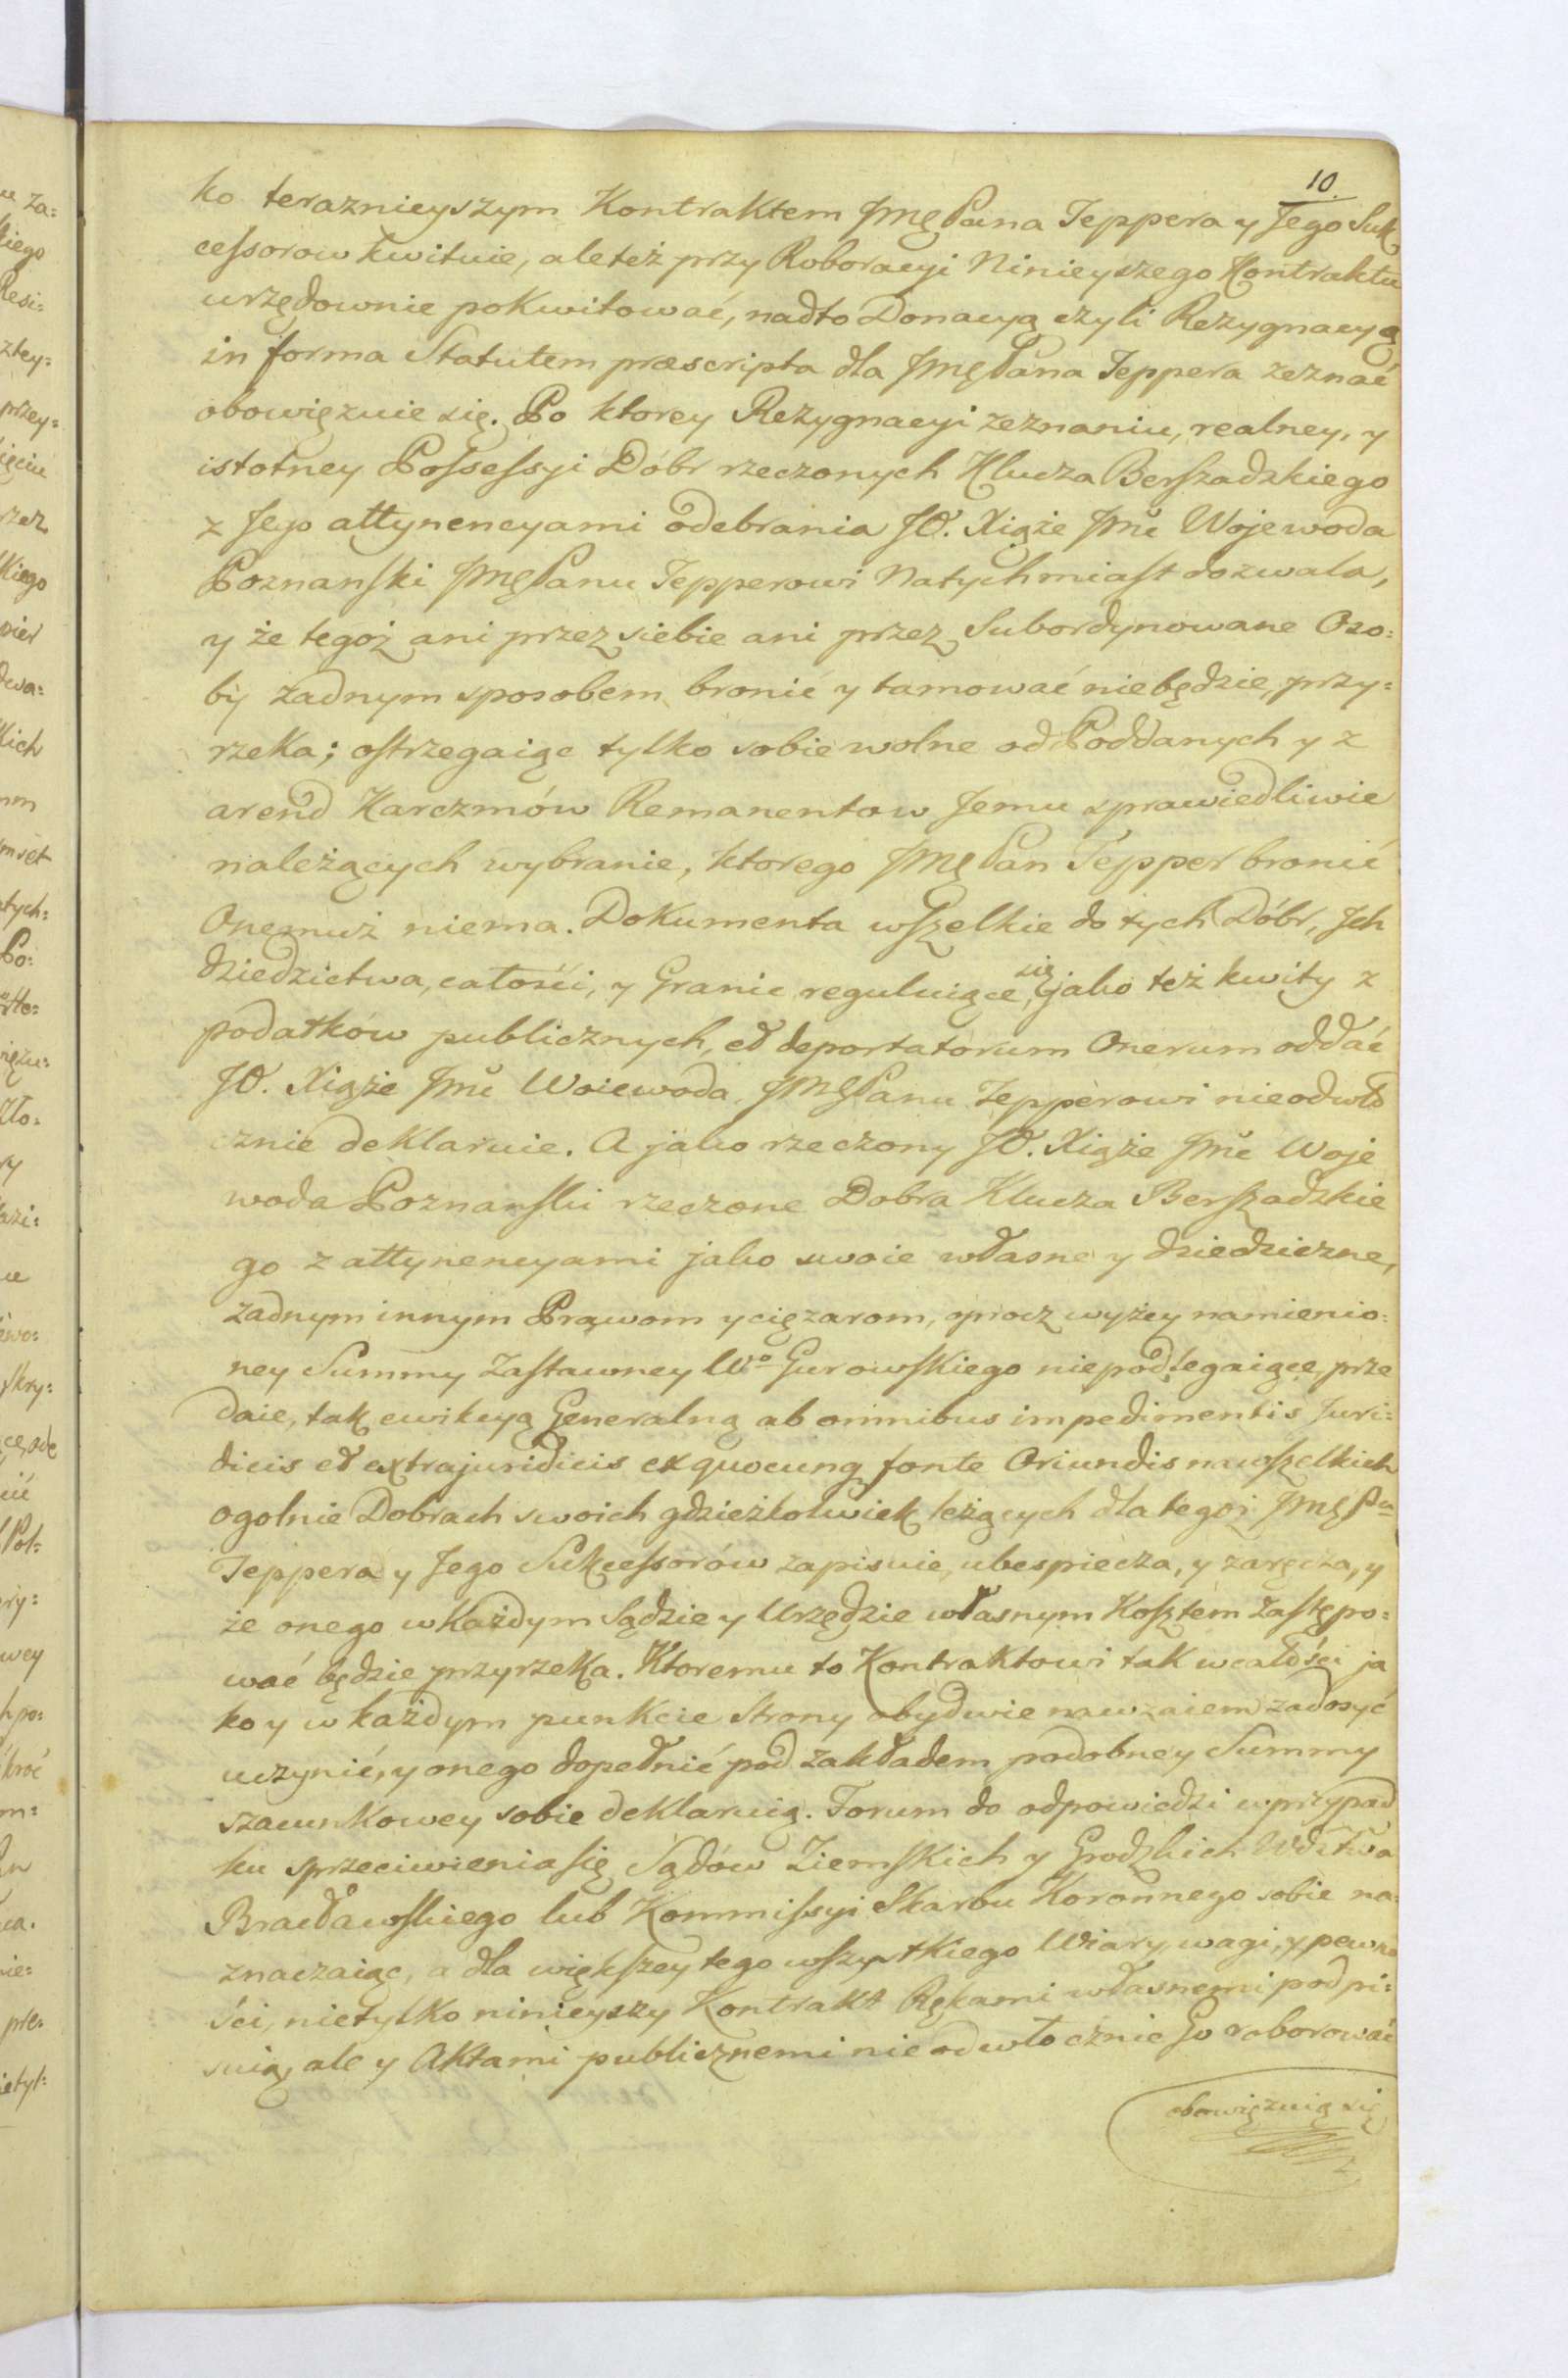 10.
ko teraznieyszym Kontraktem JmęPana Teppera y Jego Suk
cessorow kwituie, ale też przy Roboracyi Ninieyszego Kontraktu
urzędownie pokwitować, nadto Donacyą czyli Rezygnacyą
in forma Statutem præscripta dla JmęPana Teppera zeznać
obowięzuie się. Po ktorey Rezygnacyi zeznaniu, realney, y
istotney Possessyi Dóbr rzeczonych Klucza Berszadzkiego
z Jego attynencyami odebrania JO. Xiąże Jmć Wojewoda
Poznanski JmęPanu Tepperowi Natychmiast dozwala,
y że tegoż ani przez siebie ani przez Subordynowane Oso:
by żadnym sposobem bronić y tamować niebędzie, przy:
rzeka; ostrzegaiąc tylko sobie wolne od Poddanych y z
arend Karczmów Remanentow Jemu sprawiedliwie
należących wybranie, ktorego JmęPan Tepper bronić
Onemuż niema. Dokumenta wszelkie do tych Dóbr, Jch
dziedzictwa, całości, y Granic reguluiące się, jako też kwity z
podatków publicznych, et deportatorum Onerum oddać
JO. Xiąże Jmć Woiewoda JmęPanu Tepperowi nieodwło
cznie deklaruie. A jako rzeczony JO. Xiąże Jmć Woje
woda Poznanski rzeczone Dobra Klucza Berszadzkie
go z attynencyami jako swoie własne y dziedziczne,
żadnym innym Prawom y ciężarom, oprocz wyżey namienio:
ney Summy Zastawney Wo Gurowskiego niepodlegaiące, prze
daie, tak ewikcyą Generalną ab omnibus impedimentis Juri:
dicis et extrajuridicis ex quocunq fonte Oriundis na wszelkich
ogolnie Dobrach swoich gdzieżkolwiek leżących dla tegoż Jmę Pa
Teppera y Jego Sukcessorów zapisuie, ubespiecza, y zaręcza, y
że onego w Każdym Sądzie y Urzędzie własnym Kosztem zastępo:
wać będzie przyrzeka. Ktoremu to Kontraktowi tak w całości ja
ko y w każdym punkcie Strony obydwie nawzaiem zadosyć
uczynić, y onego dopełnić pod zakładem podobney Summy
szacunkowey sobie deklaruią. Forum do odpowiedzi w przypad
ku sprzeciwienia się Sądów Ziemskich y Grodzkich Wdztwa
Bracławskiego lub Kommissyi Skarbu Koronnego sobie na:
znaczaiąc, a dla większey tego wszystkiego Wiary, wagi, y pewno
ści, nietylko ninieyszy Kontrakt Rękami własnemi podpi:
suią, ale y Aktami publicznemi nieodwłocznie Go roborować
obowięzuią się